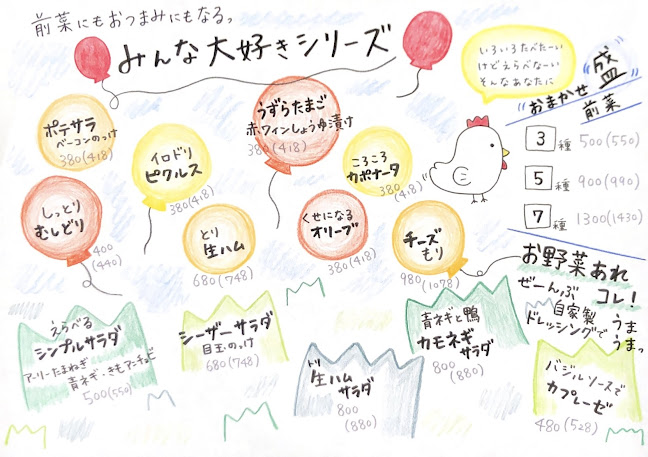 前菜にもおつまみにもなるっ
みんな大好きシリーズ
いろいろたべたーい
けどえらべなーい
そんなあなたに
おまかせ
前菜
盛
3種 500(550)
5種 900(990)
7種 1300(1430)
ポテサラ
ベーコンのっけ
380(418)
イロドリ
ピクルス
380(418)
うずらたまご
赤ワインしょうゆ漬け
380(418)
ころころ
カポナータ
380(418)
しっとり
むしどり
400
(440)
とり
生ハム
680(748)
くせになる
オリーブ
380(418)
チーズ
もり
980(1078)
お野菜あれ
コレ!
ぜーんぶ
自家製
ドレッシングで
うま
うまっ
えらべる
シンプルサラダ
アーリーたまねぎ
青ネギ・きもアーチョビ
500(550)
シーザーサラダ
目玉のっけ
680(748)
トリ
生ハム
サラダ
800
(880)
青ネギと鴨
カモネギ
サラダ
800
(880)
バジルソースで
カプレーゼ
480(528)